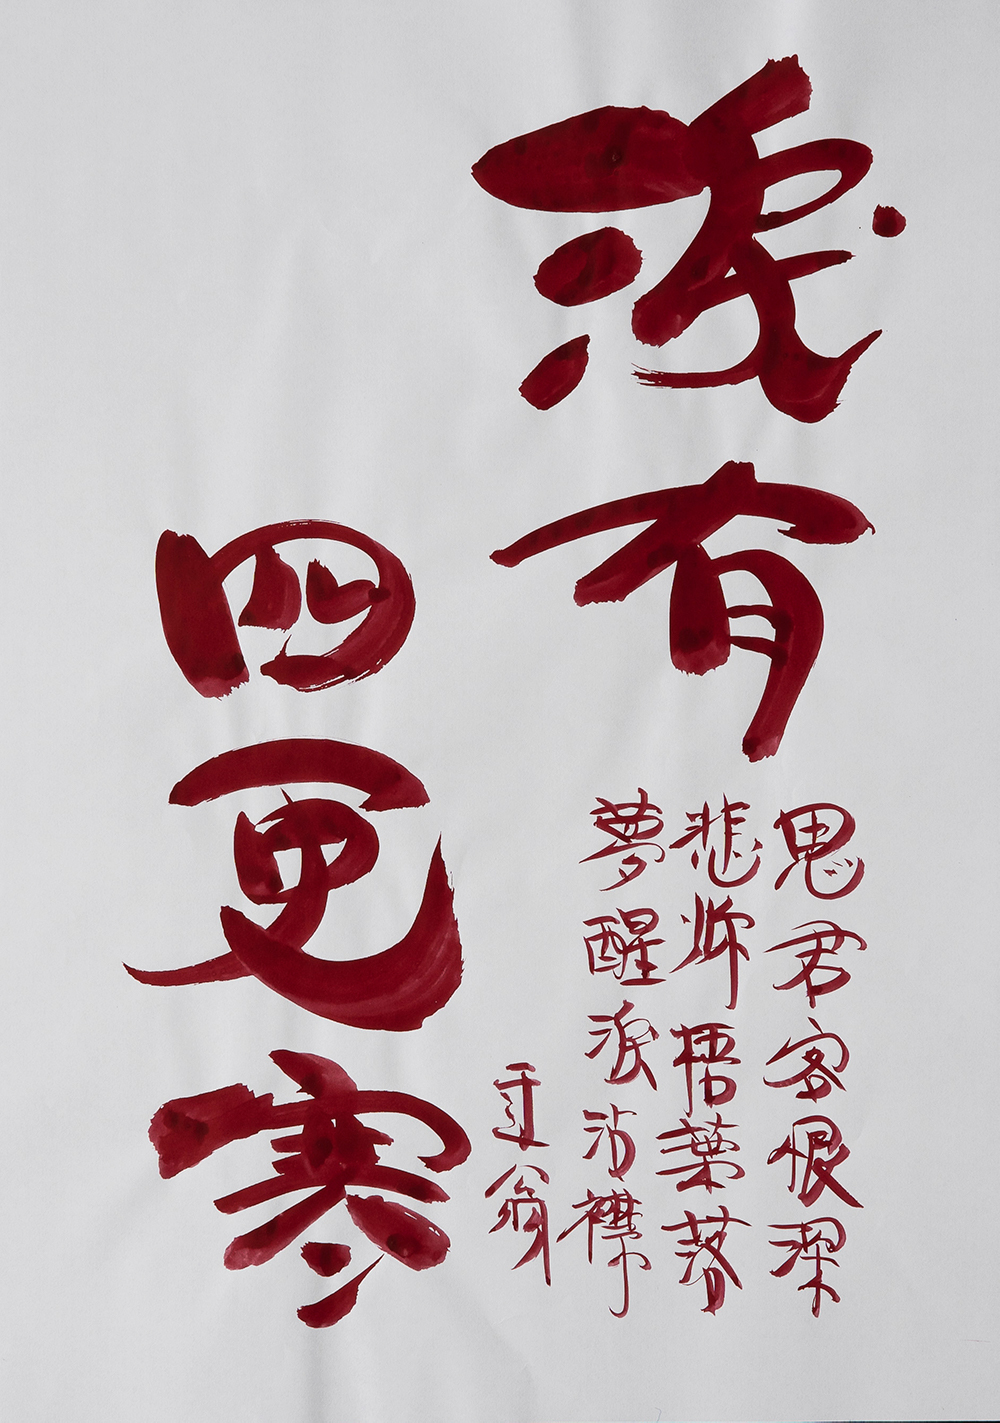 浅有
四更寒
思君客恨深
悲梧葉落
夢醒淚沾襟
翁